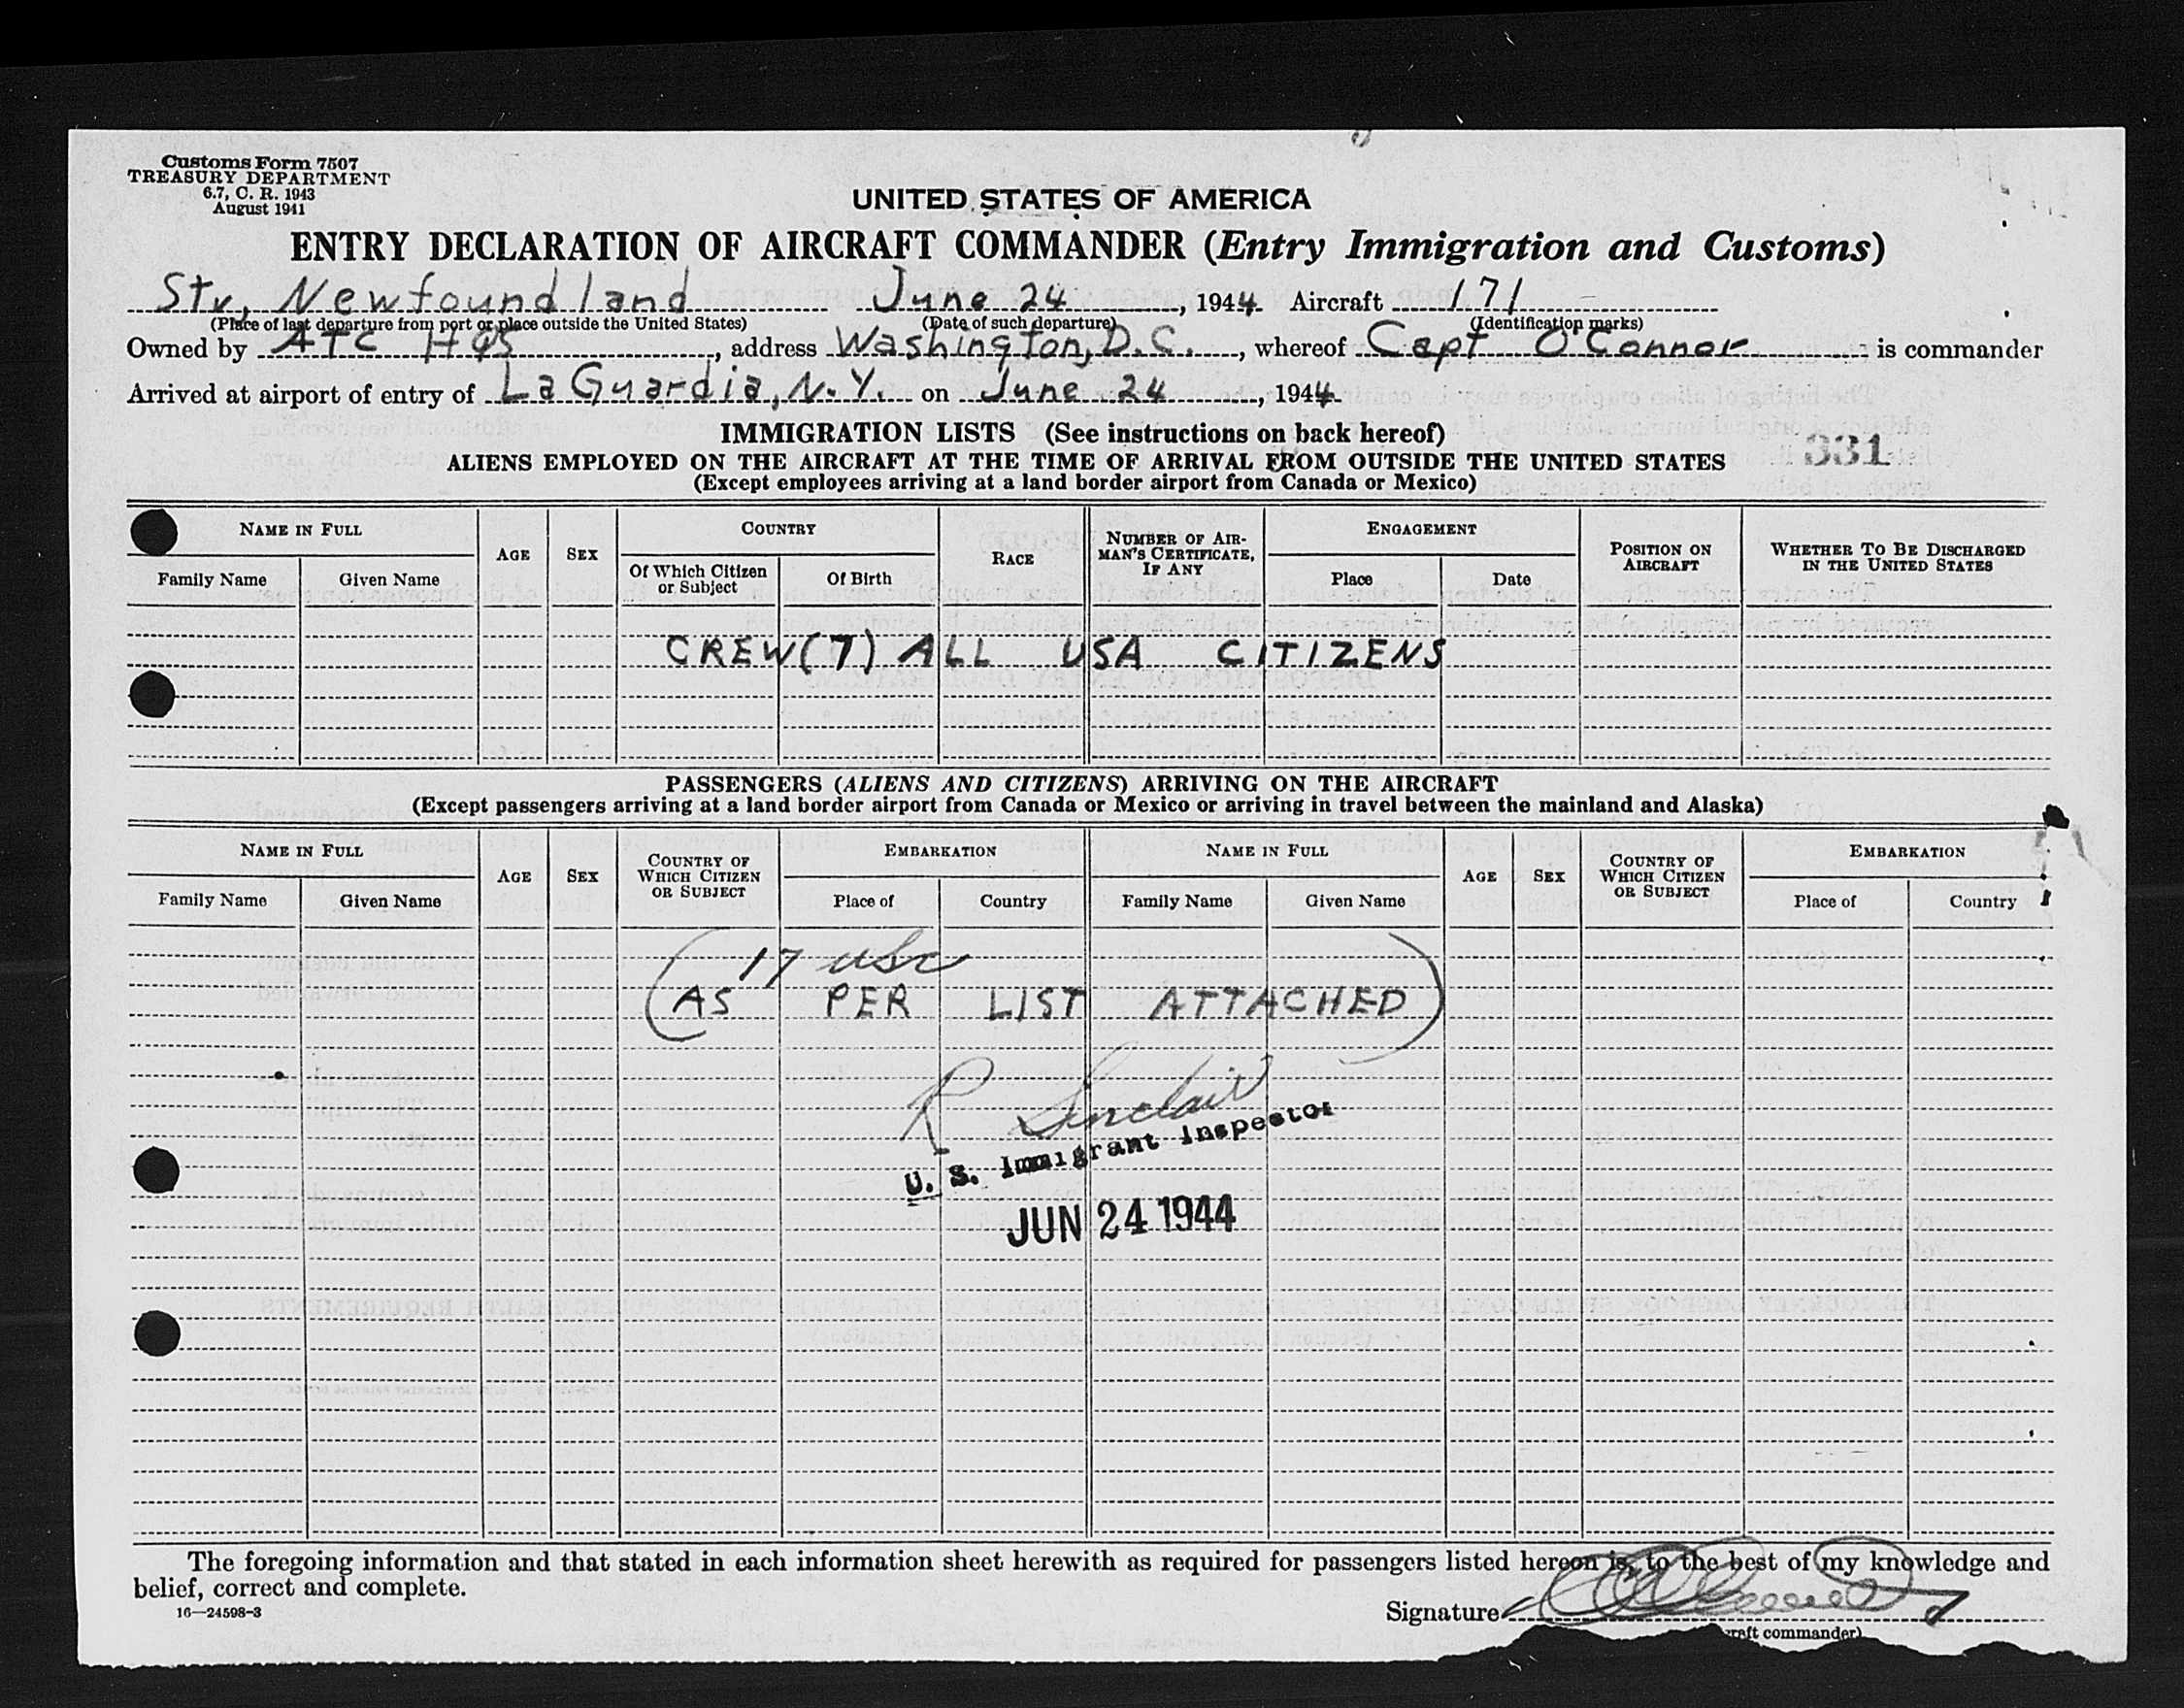 Customs Form 7507
TREASURY DEPARTMENT
6.7, C. R. 1943
August 1941
UNITED STATES OF AMERICA
ENTRY DECLARATION OF AIRCRAFT COMMANDER (Entry Immigration and Customs)
Stv, Newfoundland June 24, 1944 Aircraft 171
(Place of last departure from port or place outside the United States) (Date of such departure) (Identification marks)
Owned by ATC HQS, address Washington, D.C., whereof Capt O'Connor is commander
Arrived at airport of entry of LaGuardia, N.Y. on June 24, 1944
IMMIGRATION LISTS (See instructions on back hereof)
331
ALIENS EMPLOYED ON THE AIRCRAFT AT THE TIME OF ARRIVAL FROM OUTSIDE THE UNITED STATES
(Except employees arriving at a land border airport from Canada or Mexico)
NAME IN FULL AGE SEX COUNTRY RACE NUMBER OF AIRMAN'S CERTIFICATE, IF ANY ENGAGEMENT POSITION ON AIRCRAFT WHETHER TO BE DISCHARGED IN THE UNITED STATES
Family Name Given Name Of Which Citizen or Subject Of Birth Place Date
CREW(7) ALL USA CITIZENS
PASSENGERS (ALIENS AND CITIZENS) ARRIVING ON THE AIRCRAFT
(Except passengers arriving at a land border airport from Canada or Mexico or arriving in travel between the mainland and Alaska)
NAME IN FULL AGE SEX COUNTRY OF WHICH CITIZEN OR SUBJECT EMBARKATION NAME IN FULL AGE SEX COUNTRY OF WHICH CITIZEN OR SUBJECT EMBARKATION
Family Name Given Name Place of Country Family Name Given Name Place of Country
17 usc
(AS PER LIST ATTACHED)
R Sinclair
U. S. Immigrant Inspector
JUN 24 1944
The foregoing information and that stated in each information sheet herewith as required for passengers listed hereon is, to the best of my knowledge and
belief, correct and complete.
16—24598-3
Signature
raft commander)